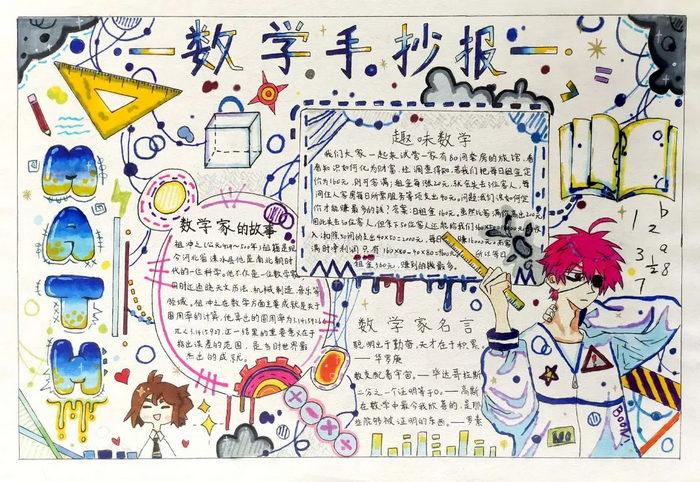 数学手抄报
M
A
T
H
趣味数学
我们大家一起来试营一家有80间套房的旅馆,看
看知识如何化为财富.经调查得知,若我们把每日租金定
价为160元,则可客满;租金每涨20元,就会失去3位客人.每
间住了人的客房每日所需服务等项支出40元.问题:我们该如何定
价才能赚最多的钱?答案:日租金360元.虽然比客满价高出200元,
因此失去30位客人,但余下50位客人还能给我们
租金360元,赚到的钱最多.
数学家的故事
祖冲之(公元429-500年)祖籍是现
今河北省涞水县,他是南北朝时
代的一位科学家.他不仅是一位数学家,
同时还通晓天文历法、机械制造、音乐等
领域.祖冲之在数学方面主要成就是关于
圆周率的计算,他算出的圆周率为3.1415926
元<3.1415927,这一结果的重要意义在于
指出误差的范围,是当时世界最
杰出的成就.
数学家名言
聪明出于勤奋,天才在于积累.
——华罗庚
数支配着宇宙.——毕达哥拉斯
二分之一个证明等于0.——高斯
在数学中最令我欣喜的,是那
些能够被证明的东西.——罗素
1 b
2
3 a
1/2 8
7
BOOM!